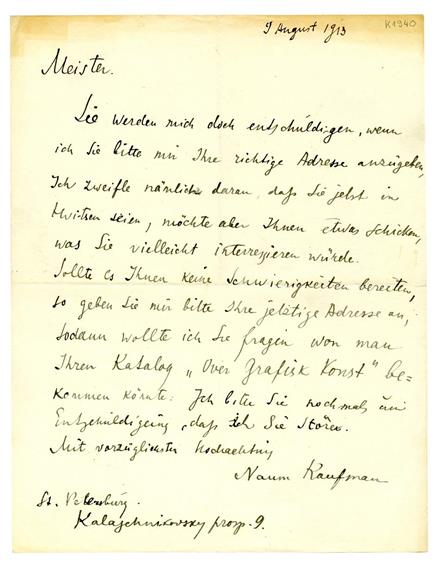 9 August 1913
K1940
Meister.
Sie werden mich doch entschuldigen, wenn
ich Sie bitte mir Ihre richtige Adresse anzugeben,
Ich zweifle nämlich daran, daß Sie jetzt in
Hvitsen seien, möchte aber Ihnen etwas schicken,
was Sie vielleicht interessieren würde.
Sollte es Ihnen keine Schwierigkeiten bereiten,
so geben Sie mir bitte Ihre jetztige Adresse an,
Sodann wollte ich Sie fragen won man
Ihren Katalog „Over Grafisk Konst" be=
kommen könnte: Ich bitte Sie nochmals um
Entschuldigung, daß ich Sie störe.
Mit vorzüglichster Hochachtung
Naum Kaufman
St. Petersburg.
Kalaschnikovsky prosp. 9.